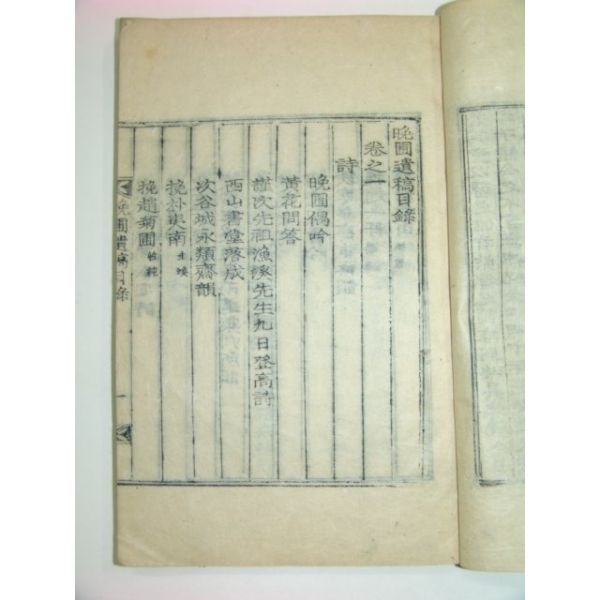 晩圃遺稿目錄
卷之一
詩
晩圃偶吟
黃花問答
謹次先祖漁溪先生九日登高詩
西山書堂落成
次谷城永類齋韻
挽朴東南
挽趙菊圃
晩圃遺稿目錄 一